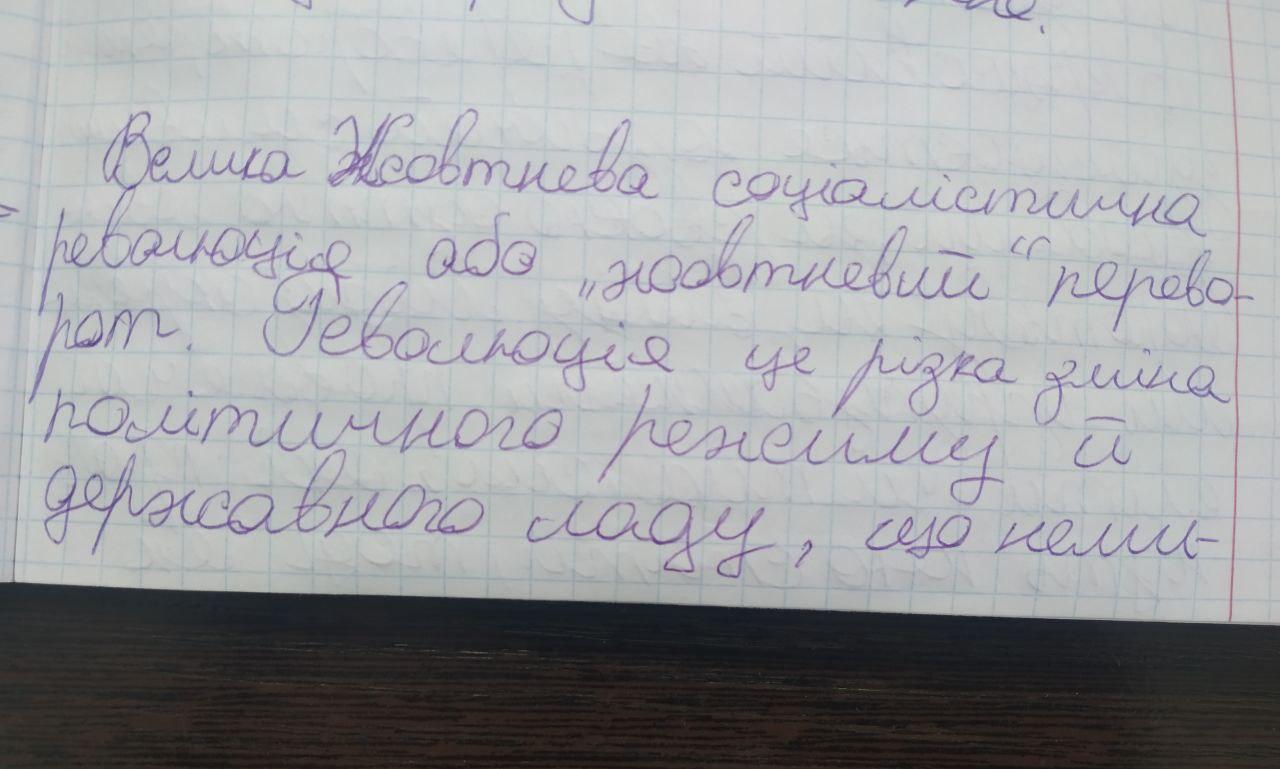 Велика Жовтнева соціалістична
революція або „жовтневий“ перево-
рот. Революція це різка зміна
політичного режиму й
державного ладу, що неми-